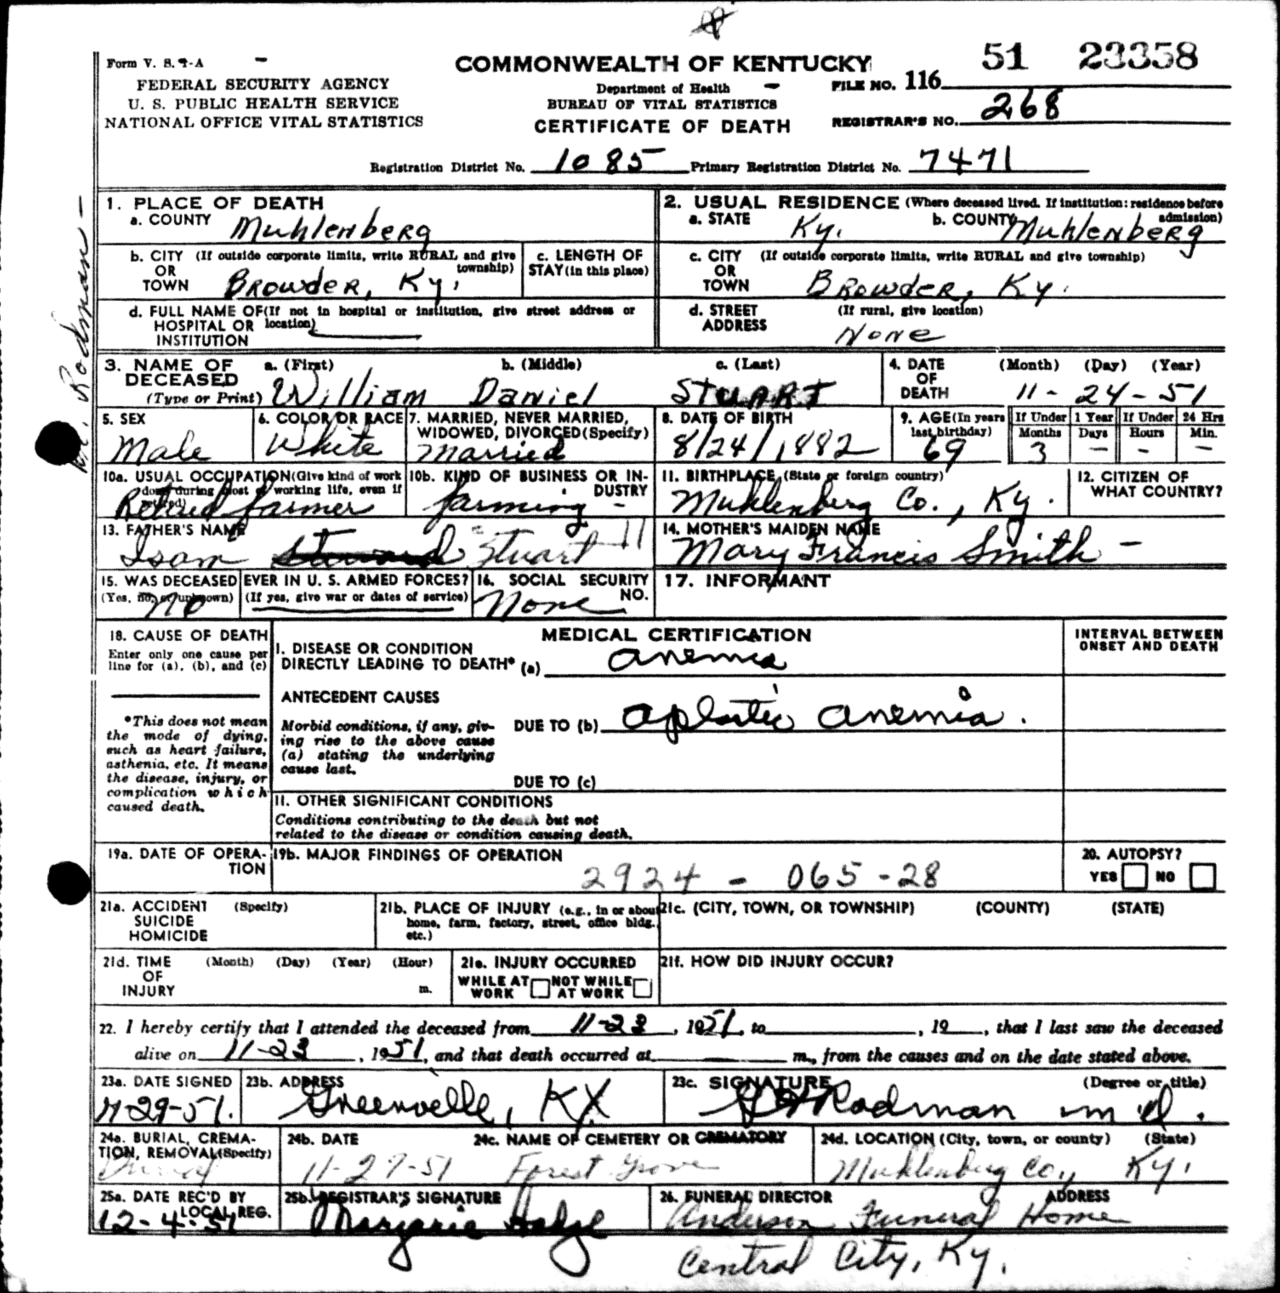 Form V. S. 1-A
FEDERAL SECURITY AGENCY
U. S. PUBLIC HEALTH SERVICE
NATIONAL OFFICE VITAL STATISTICS
COMMONWEALTH OF KENTUCKY
Department of Health
BUREAU OF VITAL STATISTICS
CERTIFICATE OF DEATH
FILE NO. 116 51 23358
REGISTRAR'S NO. 268
Registration District No. 1085 Primary Registration District No. 7471
Rodman
1. PLACE OF DEATH
a. COUNTY Muhlenberg
b. CITY (If outside corporate limits, write RURAL and give township)
OR
TOWN Browder, Ky.
c. LENGTH OF STAY (in this place)
d. FULL NAME OF (If not in hospital or institution, give street address or location)
HOSPITAL OR
INSTITUTION
2. USUAL RESIDENCE (Where deceased lived. If institution: residence before admission)
a. STATE Ky. b. COUNTY Muhlenberg
c. CITY (If outside corporate limits, write RURAL and give township)
OR
TOWN Browder, Ky.
d. STREET ADDRESS (If rural, give location)
None
3. NAME OF DECEASED (Type or Print)
a. (First) b. (Middle) c. (Last)
William Daniel Stuart
4. DATE OF DEATH (Month) (Day) (Year)
11 - 24 - 51
5. SEX
Male
6. COLOR OR RACE
White
7. MARRIED, NEVER MARRIED, WIDOWED, DIVORCED (Specify)
Married
8. DATE OF BIRTH
8/24/1882
9. AGE (In years last birthday)
69
If Under 1 Year If Under 24 Hrs
Months Days Hours Min.
3 - - -
10a. USUAL OCCUPATION (Give kind of work done during most of working life, even if retired)
Retired farmer
10b. KIND OF BUSINESS OR INDUSTRY
farming -
11. BIRTHPLACE (State or foreign country)
Muhlenberg Co., Ky.
12. CITIZEN OF WHAT COUNTRY?
13. FATHER'S NAME
Isom Stuart
14. MOTHER'S MAIDEN NAME
Mary Francis Smith -
15. WAS DECEASED EVER IN U. S. ARMED FORCES?
(Yes, no, or unknown) (If yes, give war or dates of service)
No
16. SOCIAL SECURITY NO.
None
17. INFORMANT
18. CAUSE OF DEATH
Enter only one cause per line for (a), (b), and (c)
*This does not mean the mode of dying, such as heart failure, asthenia, etc. It means the disease, injury, or complication which caused death.
MEDICAL CERTIFICATION
INTERVAL BETWEEN ONSET AND DEATH
I. DISEASE OR CONDITION
DIRECTLY LEADING TO DEATH* (a) anemia
ANTECEDENT CAUSES
Morbid conditions, if any, giving rise to the above cause (a) stating the underlying cause last.
DUE TO (b) aplastic anemia.
DUE TO (c)
II. OTHER SIGNIFICANT CONDITIONS
Conditions contributing to the death but not related to the disease or condition causing death.
19a. DATE OF OPERATION
19b. MAJOR FINDINGS OF OPERATION
2924 - 065 - 28
20. AUTOPSY?
YES NO
21a. ACCIDENT (Specify)
SUICIDE
HOMICIDE
21b. PLACE OF INJURY (e.g., in or about home, farm, factory, street, office bldg., etc.)
21c. (CITY, TOWN, OR TOWNSHIP) (COUNTY) (STATE)
21d. TIME OF INJURY (Month) (Day) (Year) (Hour) m.
21e. INJURY OCCURRED
WHILE AT WORK NOT WHILE AT WORK
21f. HOW DID INJURY OCCUR?
22. I hereby certify that I attended the deceased from 11-23, 1951, to , 19 , that I last saw the deceased
alive on 11-23, 1951, and that death occurred at m., from the causes and on the date stated above.
23a. DATE SIGNED
11-29-51.
23b. ADDRESS
Greenville, KY
23c. SIGNATURE (Degree or title)
Rodman m d.
24a. BURIAL, CREMATION, REMOVAL (Specify)
Burial
24b. DATE
11-27-51
24c. NAME OF CEMETERY OR CREMATORY
Forest Grove
24d. LOCATION (City, town, or county) (State)
Muhlenberg Co., Ky.
25a. DATE REC'D BY LOCAL REG.
12-4-51
25b. REGISTRAR'S SIGNATURE
Marjorie
26. FUNERAL DIRECTOR ADDRESS
Anderson Funeral Home
Central City, Ky.